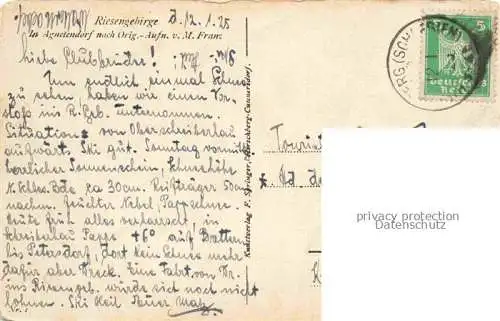 Riesengebirge d. 12.1.25
In Agnetendorf nach Orig.-Aufn. v. M. Franz
Liebe Clubbrüder!
Um endlich einmal Schnee
zu sehen haben wir einen Vor-
stoß ins R. Geb. unternommen.
Situation: von Oberschreiberhau
aufwärts Ski gut. Sonntag vormitt.
herrlicher Sonnenschein, Schneehöhe
N. Schles. Bde ca 30cm. Reifträger 50cm
nachm. feuchter Nebel Pappschnee.
Heute früh alles verharscht, in
Schreiberhau Papps +6° auf Brettern
bis Petersdorf, dort kein Schnee mehr
dafür aber Dreck. Eine Fahrt von Br.
ins Riesengeb. würde sich noch nicht
lohnen. Ski Heil Euer
Nr. 1
Kunstverlag F. Springer, Hirschberg-Cunnersdorf.
BERG (SCHLESIEN)
5
Deutsches
Reich
Tourist
privacy protection
Datenschutz